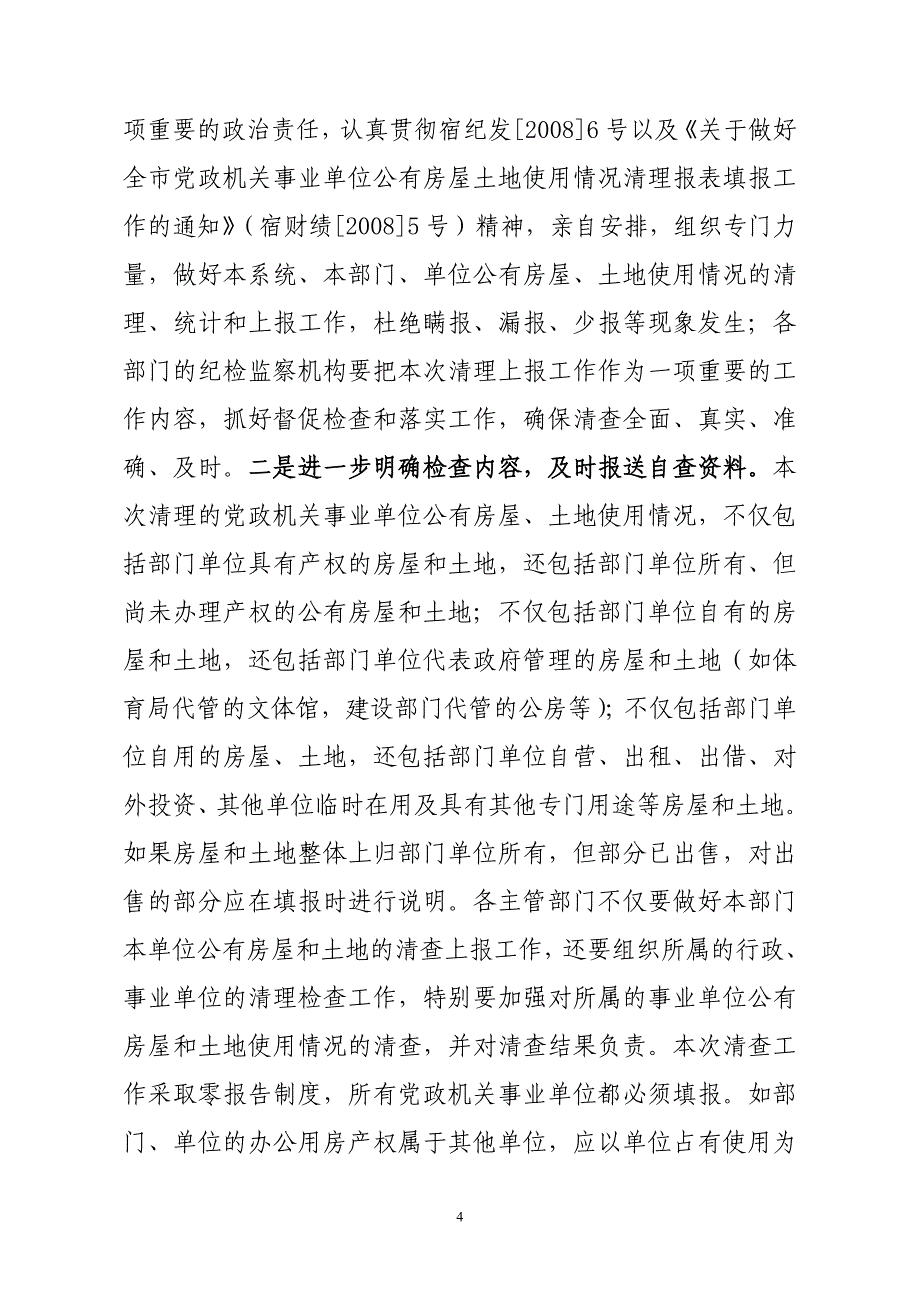 项重要的政治责任，认真贯彻宿纪发[2008]6号以及《关于做好
全市党政机关事业单位公有房屋土地使用情况清理报表填报工
作的通知》（宿财绩[2008]5号）精神，亲自安排，组织专门力
量，做好本系统、本部门、单位公有房屋、土地使用情况的清
理、统计和上报工作，杜绝瞒报、漏报、少报等现象发生；各
部门的纪检监察机构要把本次清理上报工作作为一项重要的工
作内容，抓好督促检查和落实工作，确保清查全面、真实、准
确、及时。二是进一步明确检查内容，及时报送自查资料。本
次清理的党政机关事业单位公有房屋、土地使用情况，不仅包
括部门单位具有产权的房屋和土地，还包括部门单位所有、但
尚未办理产权的公有房屋和土地；不仅包括部门单位自有的房
屋和土地，还包括部门单位代表政府管理的房屋和土地（如体
育局代管的文体馆，建设部门代管的公房等）；不仅包括部门单
位自用的房屋、土地，还包括部门单位自营、出租、出借、对
外投资、其他单位临时在用及具有其他专门用途等房屋和土地。
如果房屋和土地整体上归部门单位所有，但部分已出售，对出
售的部分应在填报时进行说明。各主管部门不仅要做好本部门
本单位公有房屋和土地的清查上报工作，还要组织所属的行政、
事业单位的清理检查工作，特别要加强对所属的事业单位公有
房屋和土地使用情况的清查，并对清查结果负责。本次清查工
作采取零报告制度，所有党政机关事业单位都必须填报。如部
门、单位的办公用房产权属于其他单位，应以单位占有使用为
4